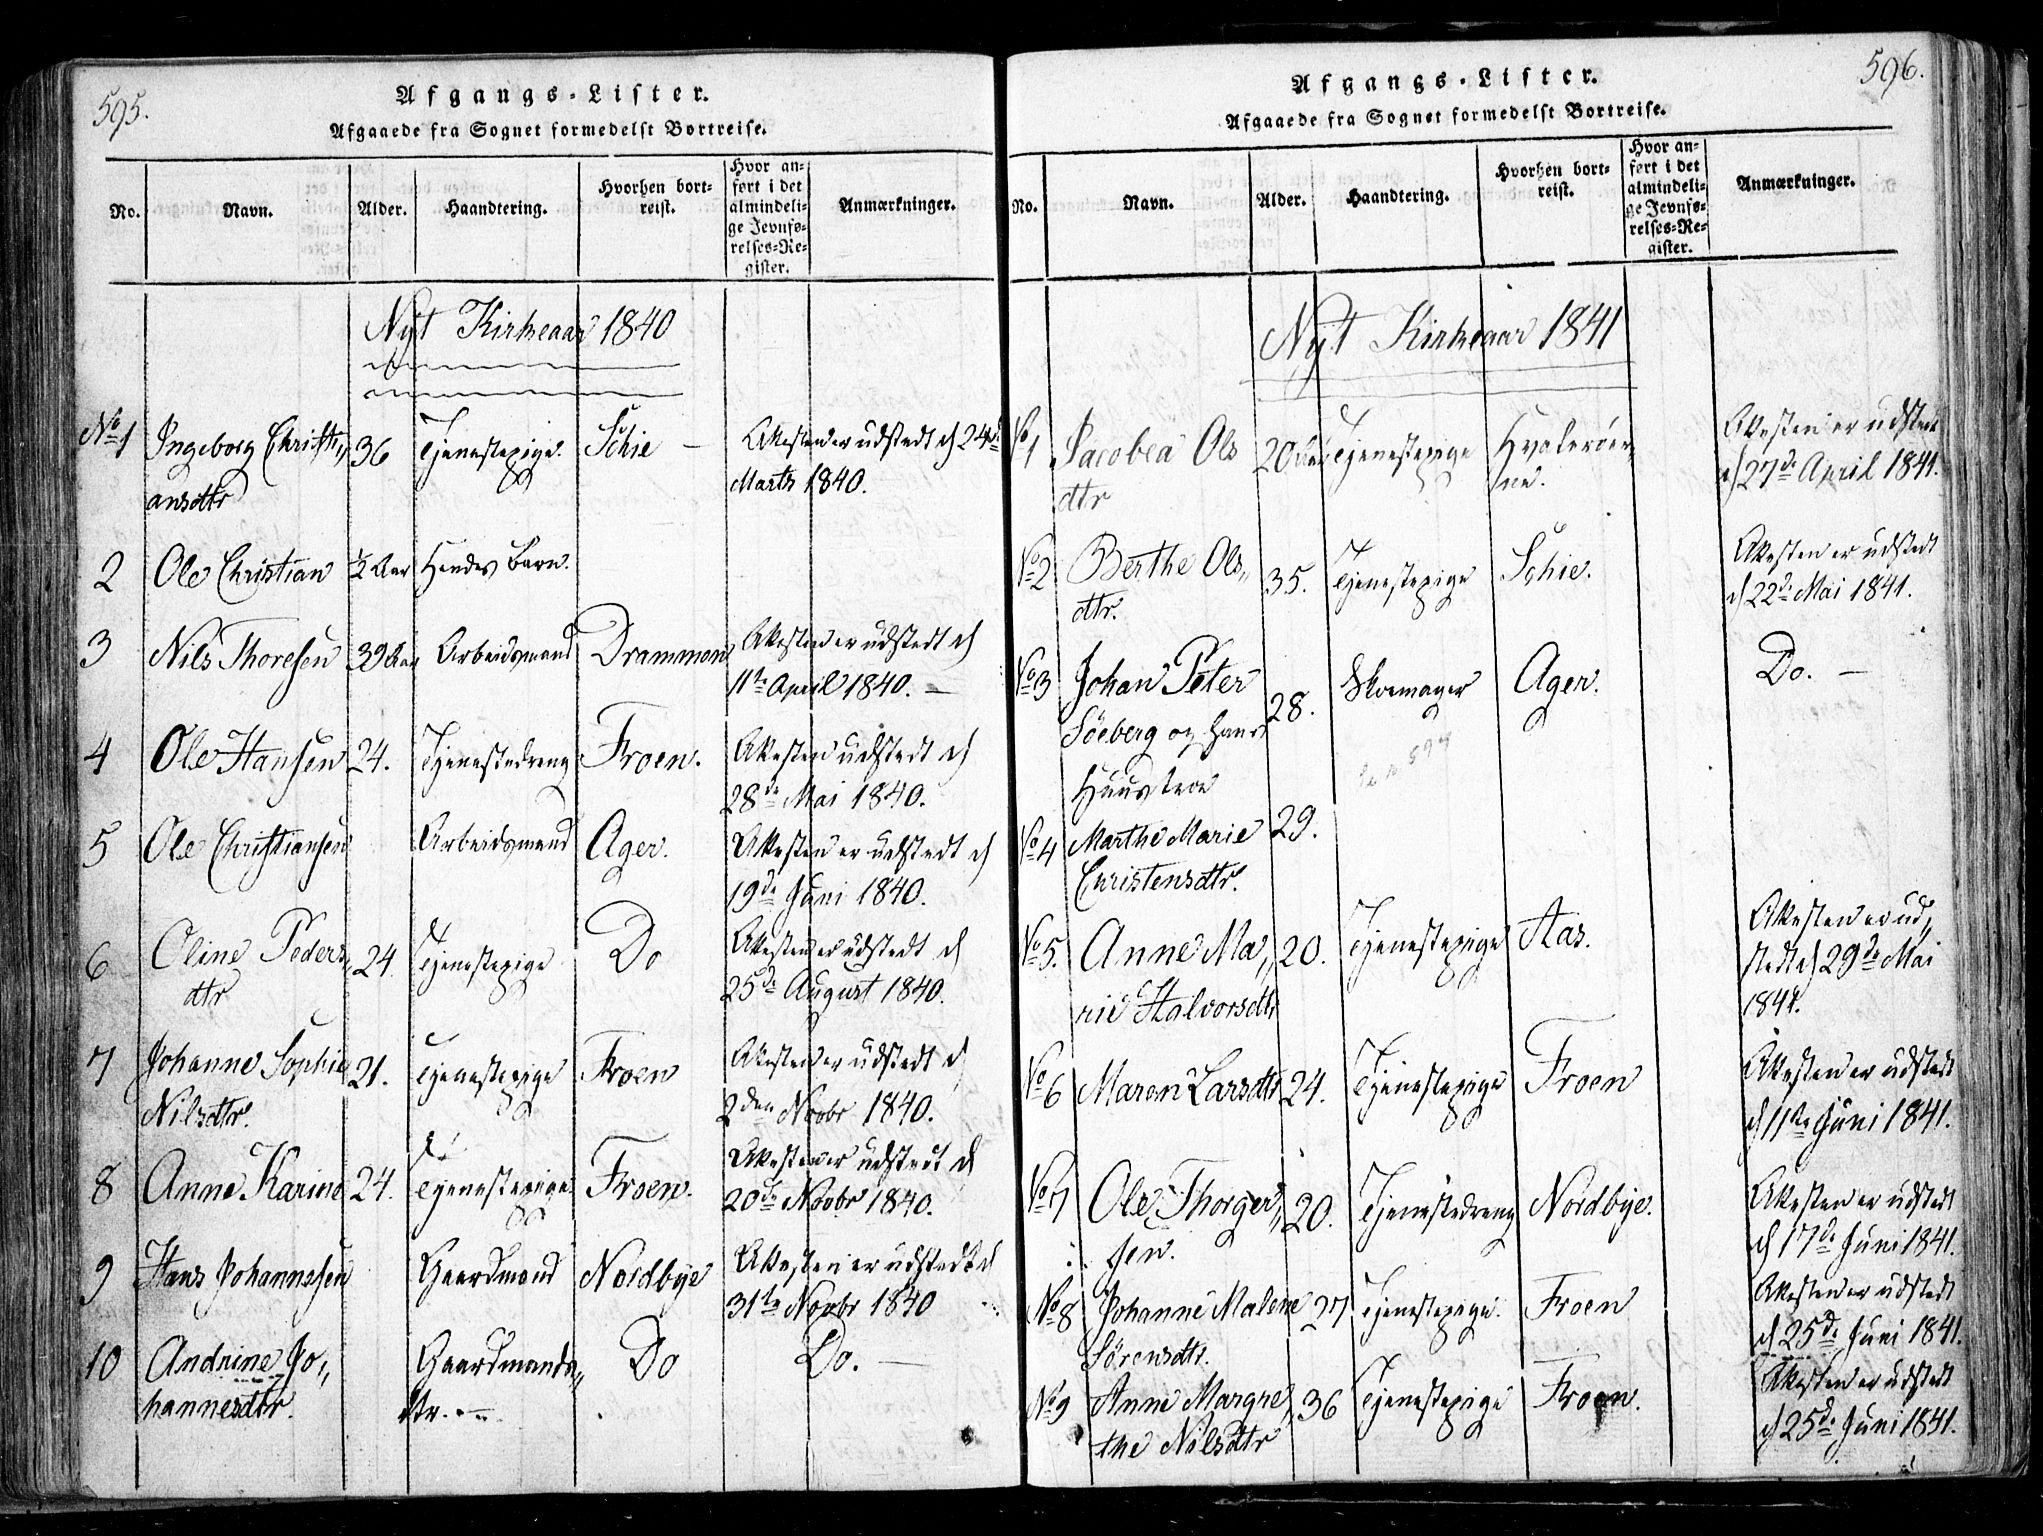 595.
Afgangs-Lister.
Afgaaede fra Sognet formedelst Bortreise.
No.
Navn.
Alder.
Haandtering.
Hvorhen bort-
reist.
Hvor an-
ført i det
almindeli-
ge Jevnfø-
relses-Re-
gister.
Anmærkninger.
Nyt Kirkeaar 1840
No 1 Ingeborg Christi„ 36 Tjenestepige. Schie — Attesten er udstedt d 24de
ansdtr Marts 1840.
2 Ole Christian ½ Aar Hendes Barn.
3 Nils Thoresen 39 Aar Arbeidsmand Drammen Attesten er udstedt d
11te April 1840. —
4 Ole Hansen 24. Tjenestedreng Froen. Attesten udstedt d
28de Mai 1840.
5 Ole Christiansen Arbeidsmand Ager. Attesten er udstedt d
19de Juni 1840.
6 Oline Peders„ 24 Tjenestepige Do Attesten er udstedt d
dtr 25de August 1840.
7 Johanne Sophie 21. Tjenestepige Froen Attesten er udstedt d
Nilsdtr. 2den Novbr 1840.
8 Anne Karine 24. Tjenestepige Froen. Attesten er udstedt d
20de Novbr 1840.
9 Hans Johannesen Gaardmand Nordbye Attesten er udstedt d
31te Novbr 1840
10 Andrine Jo„ Gaardmands„ Do Do. —
hannesdtr. dtr. —
596.
Afgangs-Lister.
Afgaaede fra Sognet formedelst Bortreise.
No.
Navn.
Alder.
Haandtering.
Hvorhen bort-
reist.
Hvor an-
ført i det
almindeli-
ge Jevnfø-
relses-Re-
gister.
Anmærkninger.
Nyt Kirkeaar 1841
No 1 Jacobea Ols 20 Aar Tjenestepige Hvaløer„ Attesten er udstedt
dtr ne. d 27de April 1841.
No 2 Berthe Ols„ 35. Tjenestepige Schie. Attesten er udstedt
dtr. d 22de Mai 1841.
No 3 Johan Peter 28. Skomager Ager. Do. —
Söeberg og Hans
Huustroe
No 4 Marthe Marie 29.
Christensdtr.
No 5. Anne Ma„ 20. Tjenestepige Aas. Attesten er ud„
rie Halvorsdtr stedt d 29de Mai
1841.
No 6 Maren Larsdtr 24. Tjenestepige Froen Attesten er udstedt
d 11te Juni 1841.
No 7 Ole Thorger„ 20. Tjenestedreng Nordbye. Attesten er udstedt
sen. d 17de Juni 1841.
No 8 Johanne Malene 27 Tjenestepige. Froen Attesten er udstedt
Sørensdtr. d 25de Juni 1841.
No 9 Anne Margre„ 36 Tjenestepige Froen. Attesten er udstedt
the Nilsdtr d 25de Juni 1841.